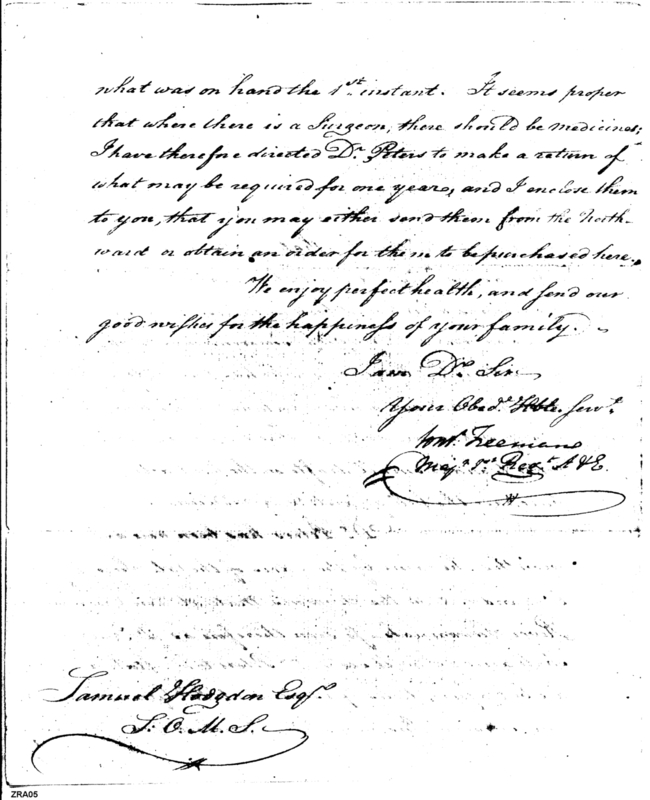 what was on hand the 1st. instant. It seems proper
that where there is a Surgeon, there should be medicines;
I have therefore directed Dr. Peters to make a return of
what may be required for one year, and I enclose them
to you, that you may either send them from the North-
ward or obtain an order for them to be purchased here.
We enjoy perfect health, and send our
good wishes for the happiness of your family.
I am Dr. Sir
Your Obedt. Hble. Servt.
Freeman
Majr. 1st. Regt. A & E
Samuel Hodgdon Esqr.
S. O. M. S.
ZRA05